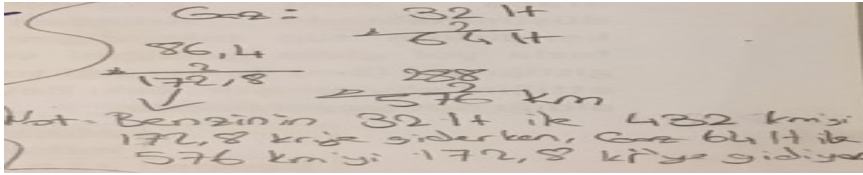 Gaz: 32 lt
x 2
64 lt
86,4
x 2
172,8
288
x 2
576 km
Not. Benzinin 32 lt ile 432 kmyi
172,8 krşe giderken, Gaz 64 lt ile
576 kmyi 172,8 kr'ye gidiyor